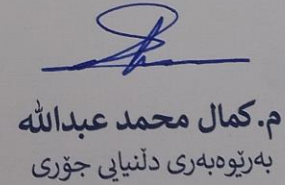 م. كمال محمد عبدالله
بەرێوەبەری دڵنیایی جۆری